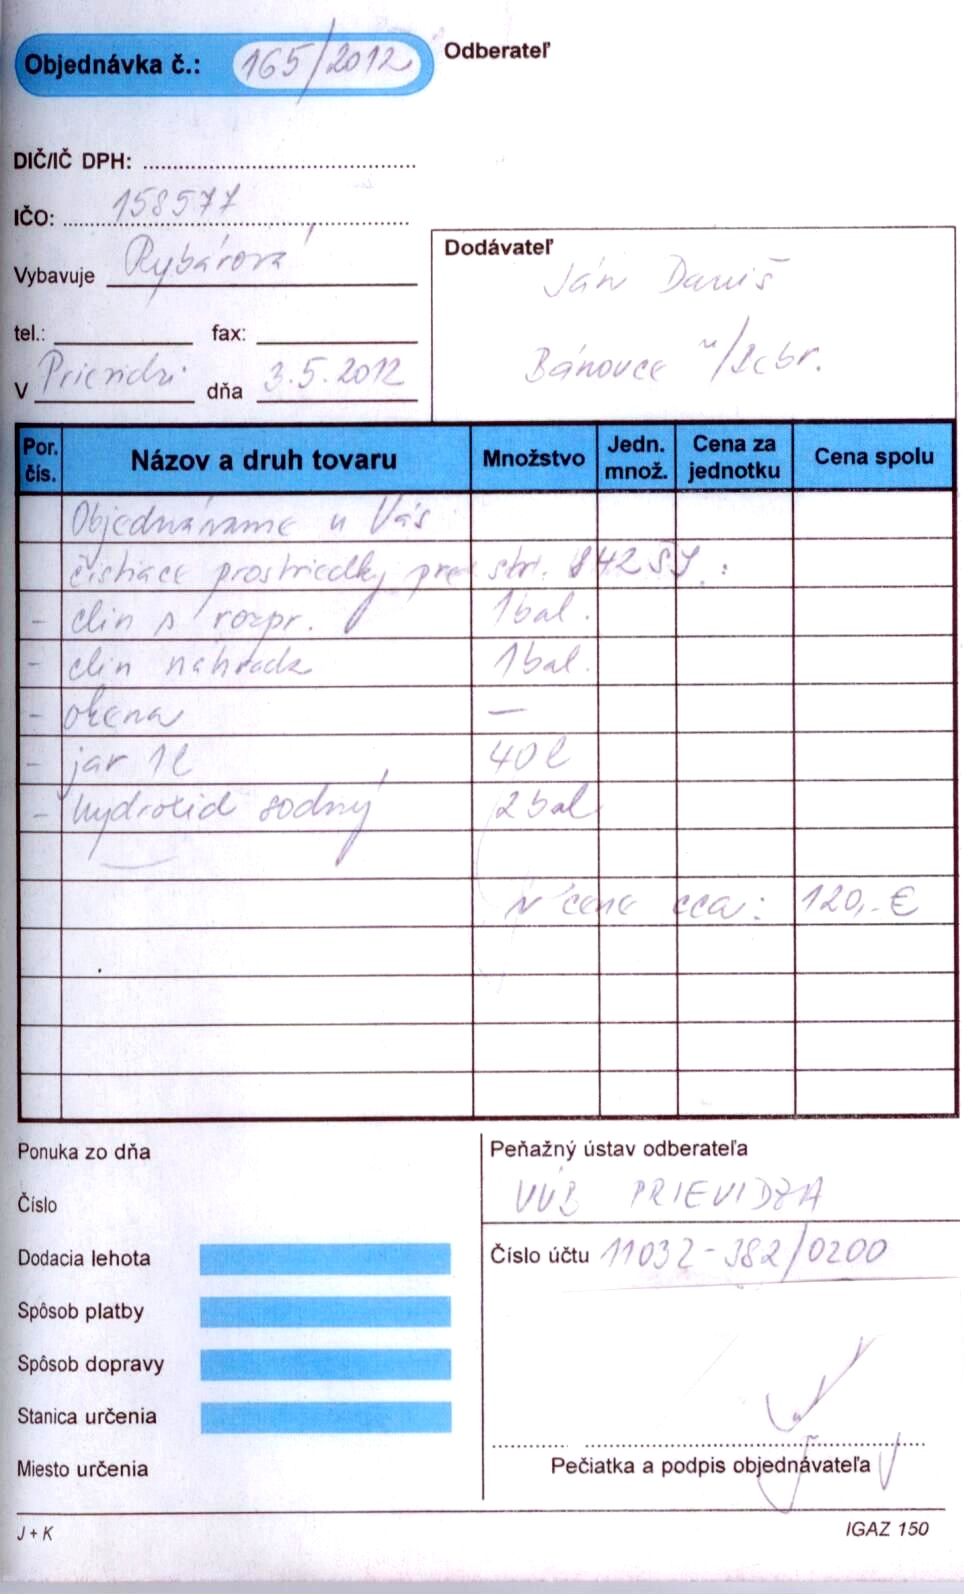 Objednávka č.: 165/2012
Odberateľ
DIČ/IČ DPH:
IČO: 158577
Vybavuje Rybárová
tel.: fax:
V Prievidzi dňa 3.5.2012
Dodávateľ
Ján Daniš
Bánovce n/Bebr.
Por. čís. Názov a druh tovaru Množstvo Jedn. množ. Cena za jednotku Cena spolu
Objednávame u Vás
čistiace prostriedky pre str. 842 ŠJ :
- clin s rozpr. 1 bal.
- clin náhrada 1 bal.
- okena —
- jar 1l 40 l
- hydroxid sodný 2 bal
v cene cca: 120,- €
Ponuka zo dňa
Číslo
Dodacia lehota
Spôsob platby
Spôsob dopravy
Stanica určenia
Miesto určenia
Peňažný ústav odberateľa
VÚB PRIEVIDZA
Číslo účtu 11032-382/0200
Pečiatka a podpis objednávateľa
J + K
IGAZ 150